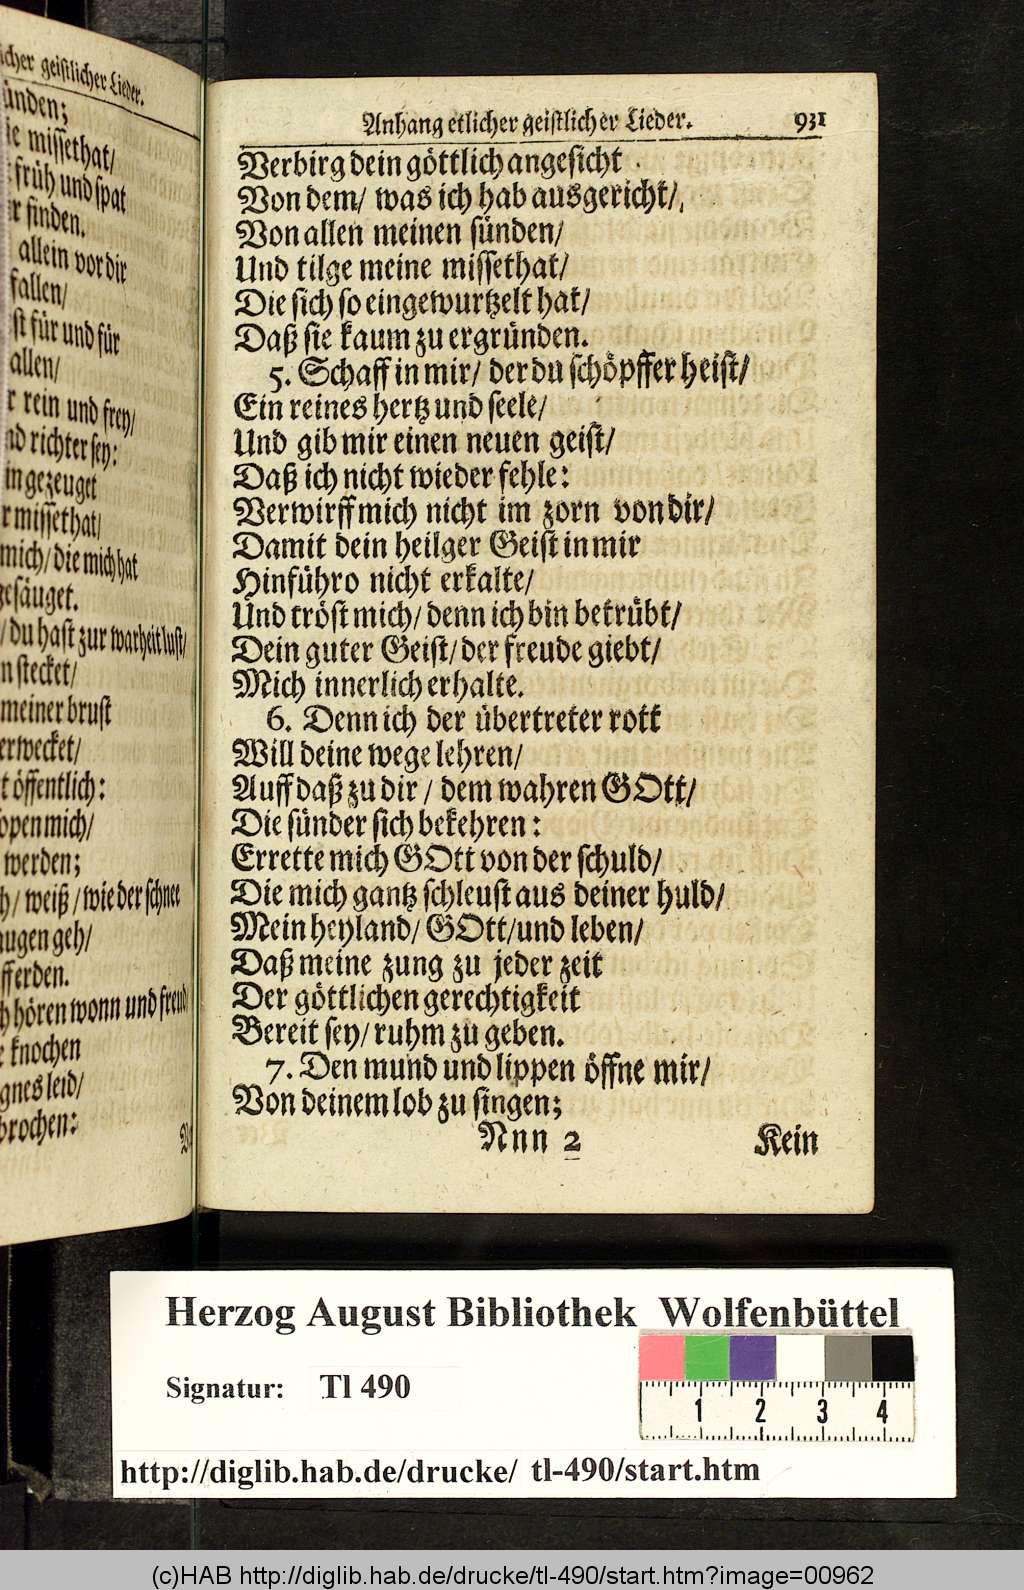 icher geistlicher Lieder.
ünden;
missethat/
früh und spat
finden.
allein vor dir
fallen/
für und für
allen/
rein und frey/
richter sey:
gezeuget
missethat/
mich/ die mich hat
gesäuget.
/ du hast zur warheit lust/
stecket/
meiner brust
erwecket/
öffentlich:
mich/
werden;
/ weiß / wie der schnee
augen geh/
hören wonn und freud
knochen
leid/
brochen:
Anhang etlicher geistlicher Lieder. 931
Verbirg dein göttlich angesicht
Von dem/ was ich hab ausgericht/
Von allen meinen sünden/
Und tilge meine missethat/
Die sich so eingewurtzelt hat/
Daß sie kaum zu ergründen.
5. Schaff in mir/ der du schöpffer heist/
Ein reines hertz und seele/
Und gib mir einen neuen geist/
Daß ich nicht wieder fehle:
Verwirff mich nicht im zorn von dir/
Damit dein heilger Geist in mir
Hinführo nicht erkalte/
Und tröst mich/ denn ich bin betrübt/
Dein guter Geist/ der freude giebt/
Mich innerlich erhalte.
6. Denn ich der übertreter rott
Will deine wege lehren/
Auff daß zu dir / dem wahren GOtt/
Die sünder sich bekehren:
Errette mich GOtt von der schuld/
Die mich gantz schleust aus deiner huld/
Mein heyland/ GOtt/ und leben/
Daß meine zung zu jeder zeit
Der göttlichen gerechtigkeit
Bereit sey/ ruhm zu geben.
7. Den mund und lippen öffne mir/
Von deinem lob zu singen;
Nnn 2 Kein
Herzog August Bibliothek Wolfenbüttel
Signatur: Tl 490
1 2 3 4
http://diglib.hab.de/drucke/ tl-490/start.htm
(c)HAB http://diglib.hab.de/drucke/tl-490/start.htm?image=00962